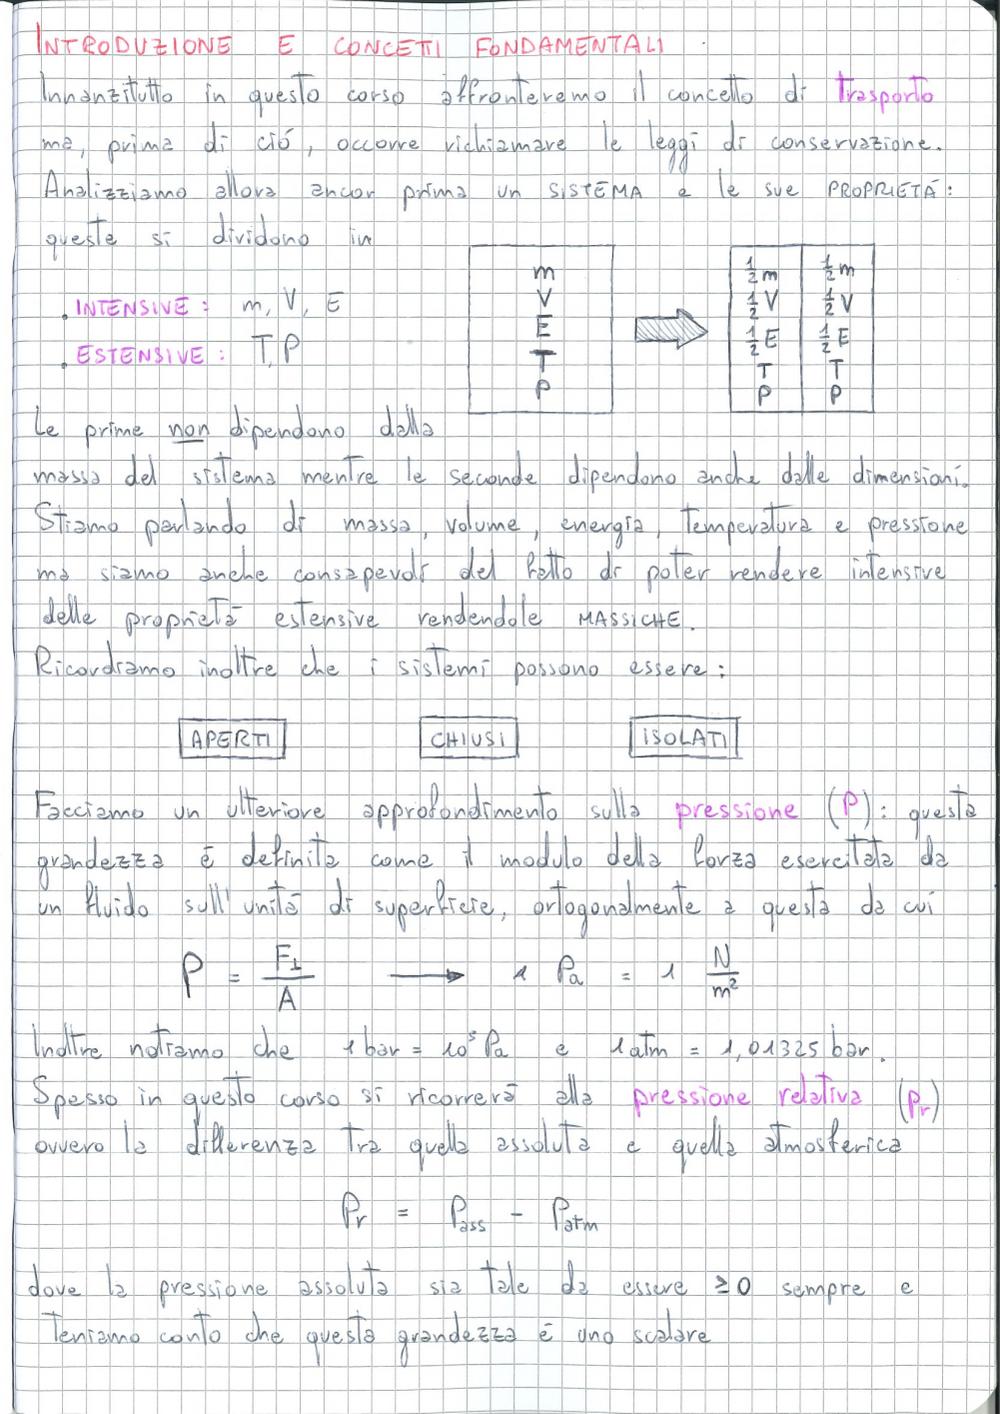 INTRODUZIONE E CONCETTI FONDAMENTALI
Innanzitutto in questo corso affronteremo il concetto di trasporto
ma, prima di ciò, occorre richiamare le leggi di conservazione.
Analizziamo allora ancor prima un SISTEMA e le sue PROPRIETÀ:
queste si dividono in
. INTENSIVE: m, V, E
. ESTENSIVE: T, P
m
V
E
T
P
1/2 m 1/2 m
1/2 V 1/2 V
1/2 E 1/2 E
T T
P P
Le prime non dipendono dalla
massa del sistema mentre le seconde dipendono anche dalle dimensioni.
Stiamo parlando di massa, volume, energia, temperatura e pressione
ma siamo anche consapevoli del fatto di poter rendere intensive
delle proprietà estensive rendendole MASSICHE.
Ricordiamo inoltre che i sistemi possono essere:
APERTI CHIUSI ISOLATI
Facciamo un ulteriore approfondimento sulla pressione (P): questa
grandezza è definita come il modulo della forza esercitata da
un fluido sull'unità di superficie, ortogonalmente a questa da cui
P = F⊥/A → 1 Pa = 1 N/m²
Inoltre notiamo che 1 bar = 10⁵ Pa e 1 atm = 1,01325 bar.
Spesso in questo corso si ricorrerà alla pressione relativa (Pr)
ovvero la differenza tra quella assoluta e quella atmosferica
Pr = Pass - Patm
dove la pressione assoluta sia tale da essere ≥0 sempre e
teniamo conto che questa grandezza è uno scalare